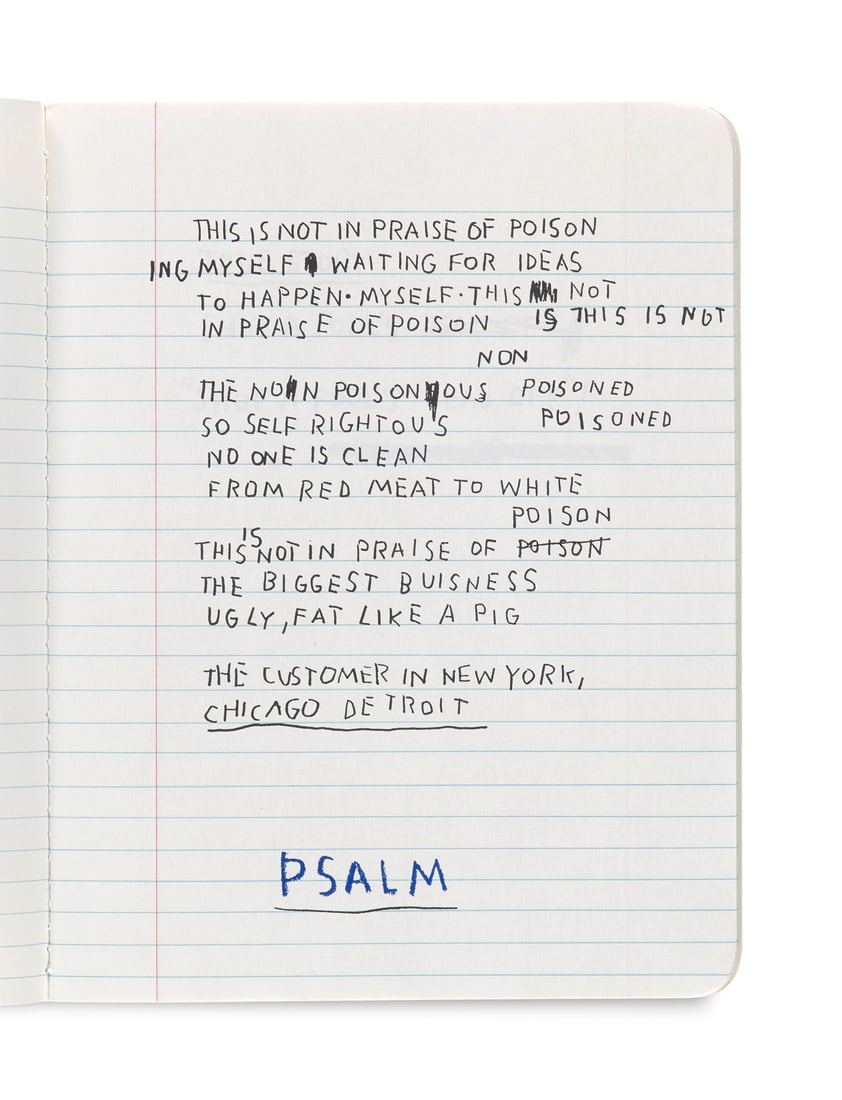 THIS IS NOT IN PRAISE OF POISON
ING MYSELF WAITING FOR IDEAS
TO HAPPEN• MYSELF•THIS NOT
IN PRAISE OF POISON IS THIS IS NOT
NON
THE NON POISONOUS POISONED
SO SELF RIGHTOUS POISONED
NO ONE IS CLEAN
FROM RED MEAT TO WHITE
POISON
IS
THIS NOT IN PRAISE OF POISON
THE BIGGEST BUISNESS
UGLY, FAT LIKE A PIG
THE CUSTOMER IN NEW YORK,
CHICAGO DETROIT
PSALM